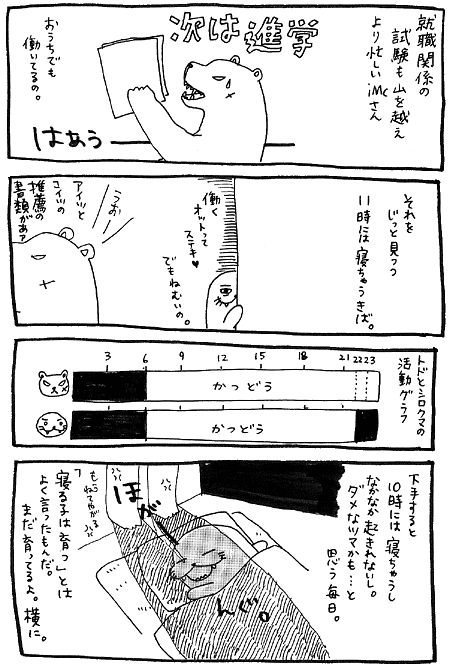 就職関係の
試験も山を越え
より忙しいiMcさん
次は進学
おうちでも
働いてるの。
はあぅ
それを
じっと見つつ
11時には寝ちゃうきば。
働く
オットって
ステキ♥
でもねむいの。
うおー
アイツと
コイツの
推薦の
書類がぁァ
トドとシロクマの
活動グラフ
3 6 9 12 15 18 21 22 23
かつどう
かつどう
下手すると
10時には寝ちゃうし
なかなか起きれないし。
ダメなツマかも…と
思う毎日。
ほが
んご。
もうねてやがる
「寝る子は育つ」とは
よく言ったもんだ。
まだ育ってるよ。横に。